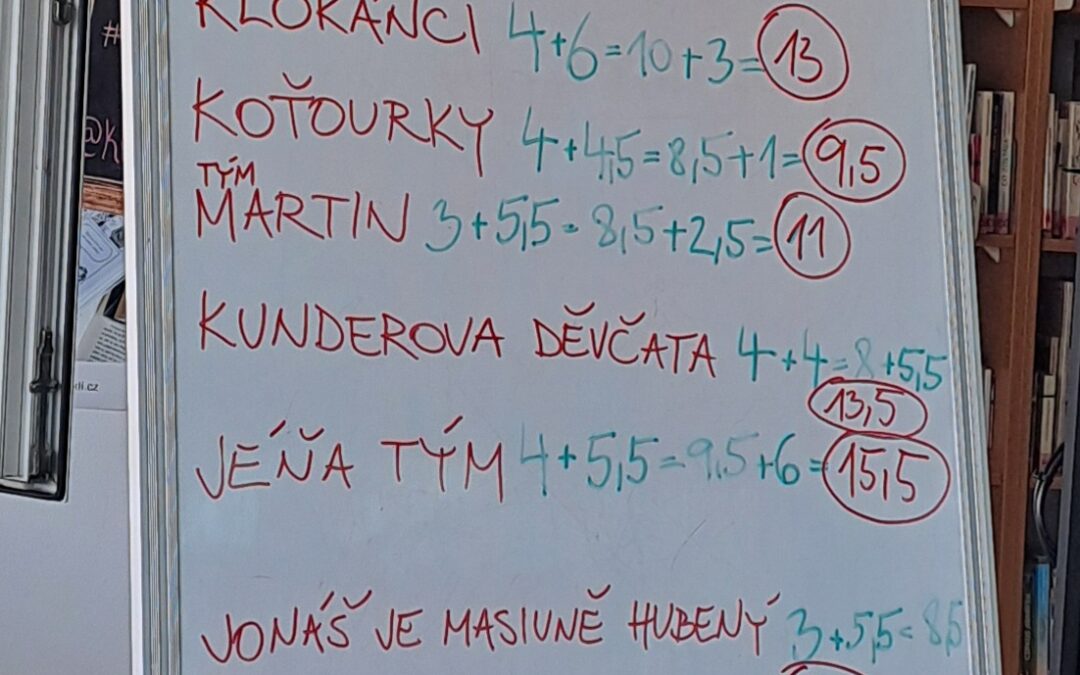 KLOKÁNCI 4+6=10+3=13
KOŤOURKY 4+4,5=8,5+1=9,5
TÝM
MARTIN 3+5,5=8,5+2,5=11
KUNDEROVA DĚVČATA 4+4=8+5,5
13,5
JÉŇA TÝM 4+5,5=9,5+6=15,5
JONÁŠ JE MASIVNĚ HUBENÝ 3+5,5=8,5
#
@K
di.cz